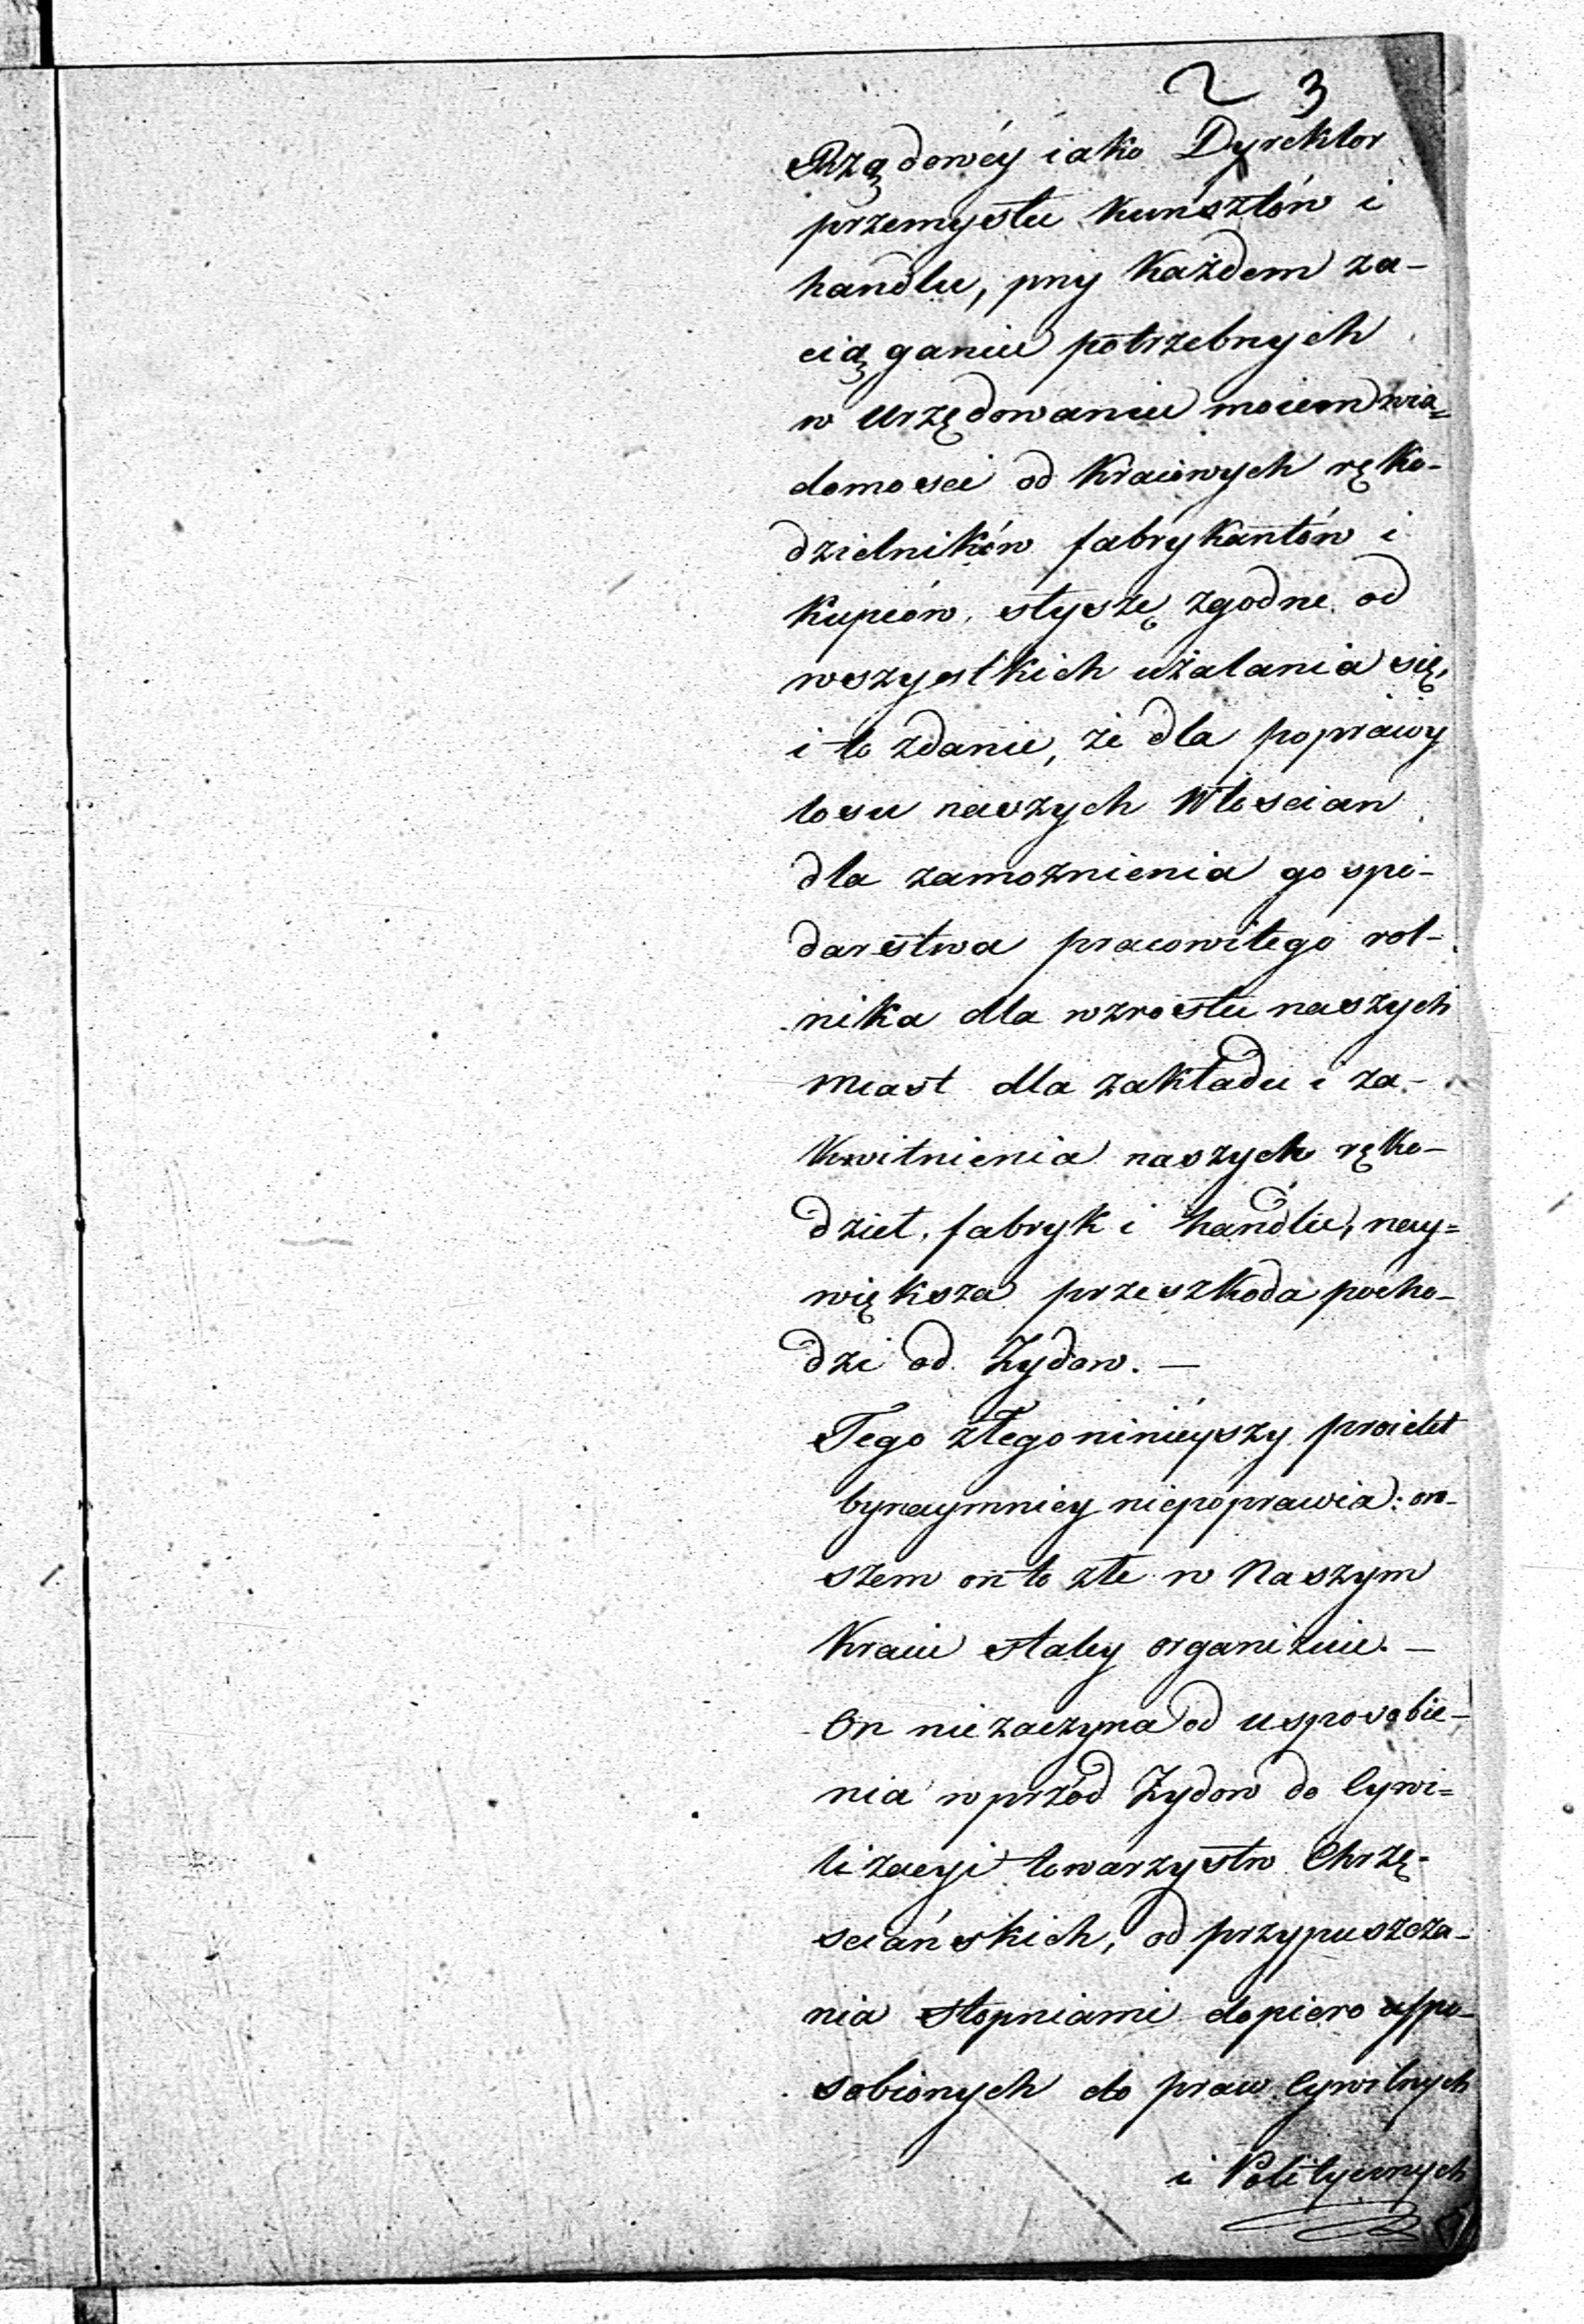 2 3
Rządowéy iako Dyrektor
przemysłu kunsztów i
handlu, przy każdem za-
ciąganiu potrzebnych
w urzędowaniu moiem wia=
domosci od kraiowych ręko-
dzielników fabrykantów i
kupców, słyszę zgodne od
wszystkich użalania się,
i to zdanie, że dla poprawy
losu naszych Włoscian
dla zamożnienia gospo-
darstwa pracowitego rol-
nika dla wzrostu naszych
miast dla zakładu i za-
kwitnienia naszych ręko-
dzieł, fabryk i handlu, nay=
większa przeszkoda pocho-
dzi od Żydow. —
Tego złego ninieyszy proiekt
bynaymniey niepoprawia: ow-
szem on to złe w Naszym
Kraiu staley organizuie. —
On nie zaczyna od usposobie-
nia wprzód Żydow do Cywi=
lizacyi towarzystw Chrze-
sciańskich, od przypuszcza-
nia stopniami dopiero uspo-
sobionych do praw Cywilnych
i Politycznych